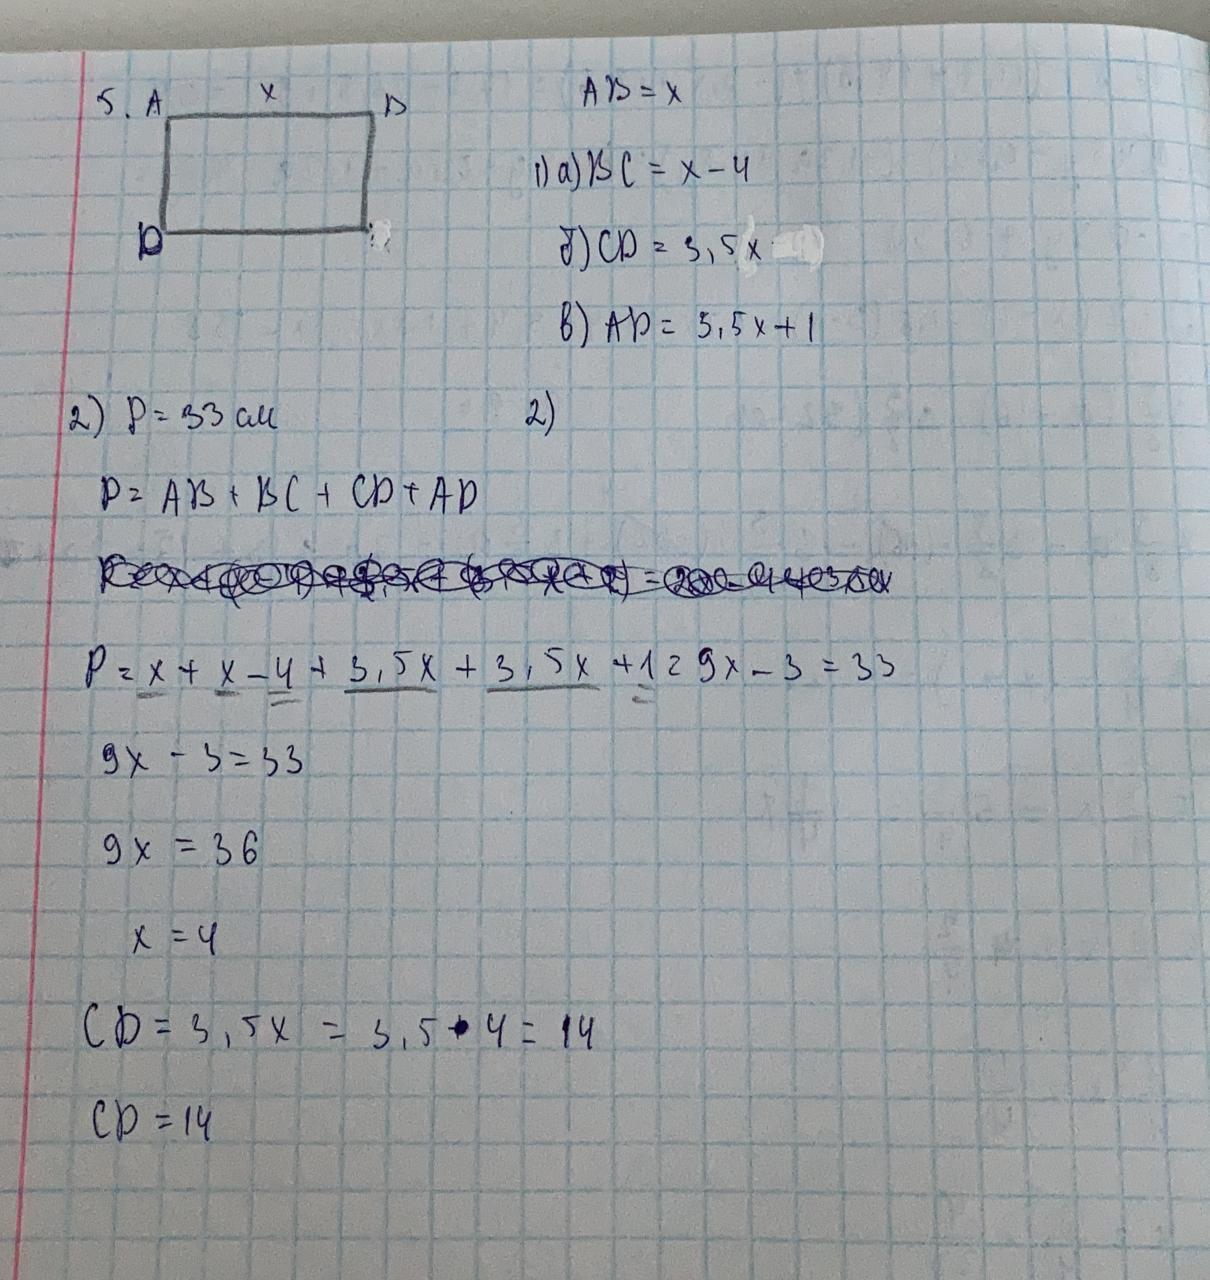 5. A x B
D
AB = x
1) а) BC = x - 4
б) CD = 3,5x
в) AD = 3,5x + 1
2) P = 33 см
2)
P = AB + BC + CD + AD
P = x + x - 4 + 3,5x + 3,5x + 1 = 9x - 3 = 33
9x - 3 = 33
9x = 36
x = 4
CD = 3,5x = 3,5 • 4 = 14
CD = 14